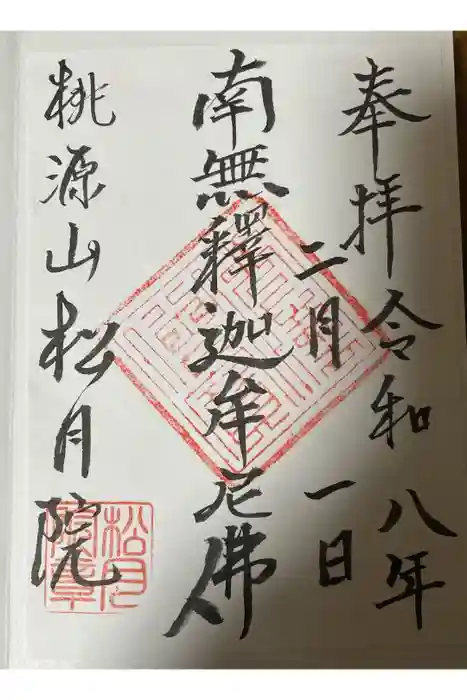 奉拝
令和八年
二月一日
南無釋迦牟尼佛
桃源山松月院
松月院章